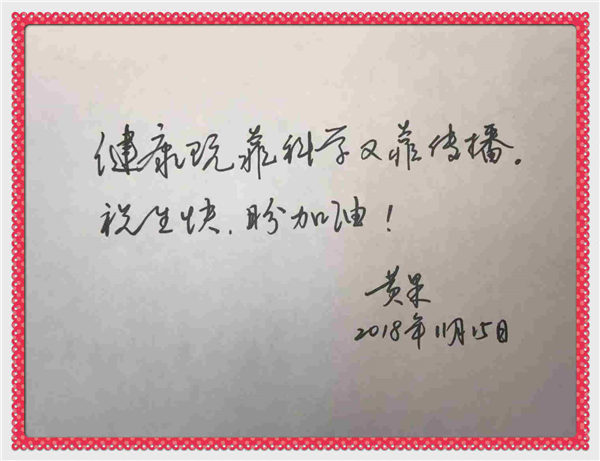 健康既靠科学又靠传播。
祝生快,盼加油!
黄果
2018年11月15日